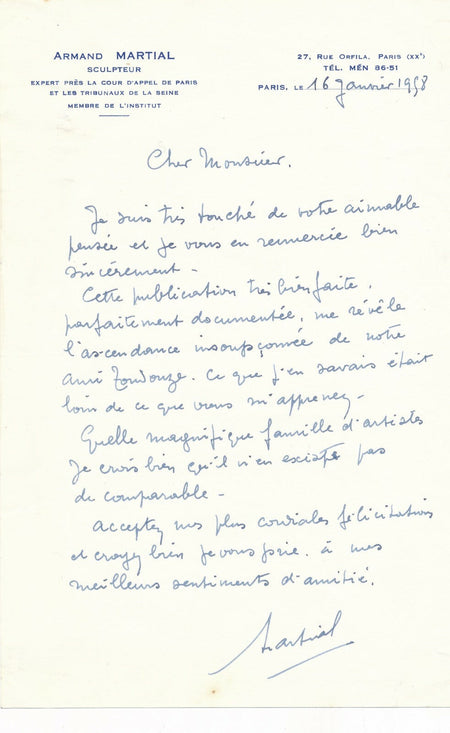 ARMAND MARTIAL
SCULPTEUR
EXPERT PRÈS LA COUR D'APPEL DE PARIS
ET LES TRIBUNAUX DE LA SEINE
MEMBRE DE L'INSTITUT
27, RUE ORFILA, PARIS (XXe)
TÉL. MÉN 86-51
PARIS, LE 16 Janvier 1958
Cher Monsieur.
Je suis très touché de votre aimable
pensée et je vous en remercie bien
sincèrement -
Cette publication très bien faite,
parfaitement documentée, me révèle
l'ascendance insoupçonnée de notre
ami Toudouze. Ce que j'en savais était
loin de ce que vous m'apprenez -
Quelle magnifique famille d'artistes
Je crois bien qu'il n'en existe pas
de comparable -
Acceptez mes plus cordiales félicitations
et croyez bien je vous prie, à mes
meilleurs sentiments d'amitié.
Martial